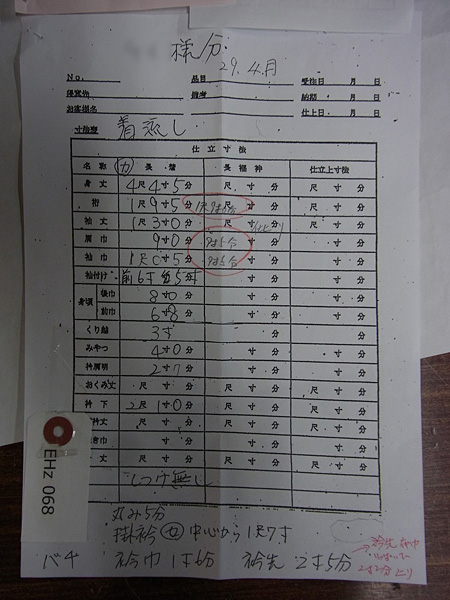 様分
29.4.月
No. 品目 受注日 月 日
備考 納期 月 日
お客様名 仕上日 月 日
着流し
仕立寸法
名称 (カ) 長着 長襦袢 仕立上寸法
身丈 4尺4寸5分 尺 寸 分 尺 寸 分
裄 1尺9寸5分 尺 寸 分
袖丈 1尺3寸0分 尺 寸 尺 寸 分
肩巾 9寸0分 寸 分
袖巾 1尺0寸5分 寸 分
袖付け 前6寸 5寸 寸 分 寸 分
身頃 後巾 8寸0 分 寸 分 寸 分
前巾 6寸8 分 寸 分 寸 分
3寸 分 分
みやつ 4寸0分 寸 分 寸 分
衿肩明 2寸7 分 寸 分 寸 分
おくみ丈 尺 寸 分 尺 寸 分 尺 寸 分
衿下 2尺1寸0分 尺 寸 分 尺 寸 分
丈 尺 寸 分 尺 寸 分 尺 寸 分
巾 寸 分 寸 分 寸 分
丈 尺 寸 分 尺 寸 分 尺 寸 分
しつけ無し
EHz 068
丸み5分
掛衿(カ)中心から1尺7寸
バチ 衿巾1寸6分 衿先2寸5分
衿先